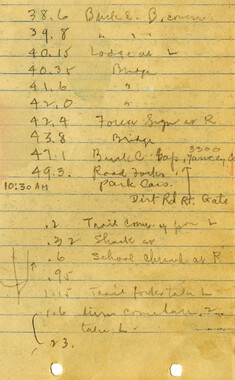 38.6 Buck C. B,
39.8 " " "
40.15 Lodge at L
40.35 Bridge
41.6 "
42.0 "
42.4 Forest Sign at R
43.8 Bridge
47.1 Buck C. Gap, 3300 Yancey Co
49.3 Road forks
10:30 AM Park Cars.
Dirt Rd Rt. Gate
.2 Trail
.32 Shack
.6 School Church at R
.95
1.15 Trail forks take L
1.6
take L.
23.